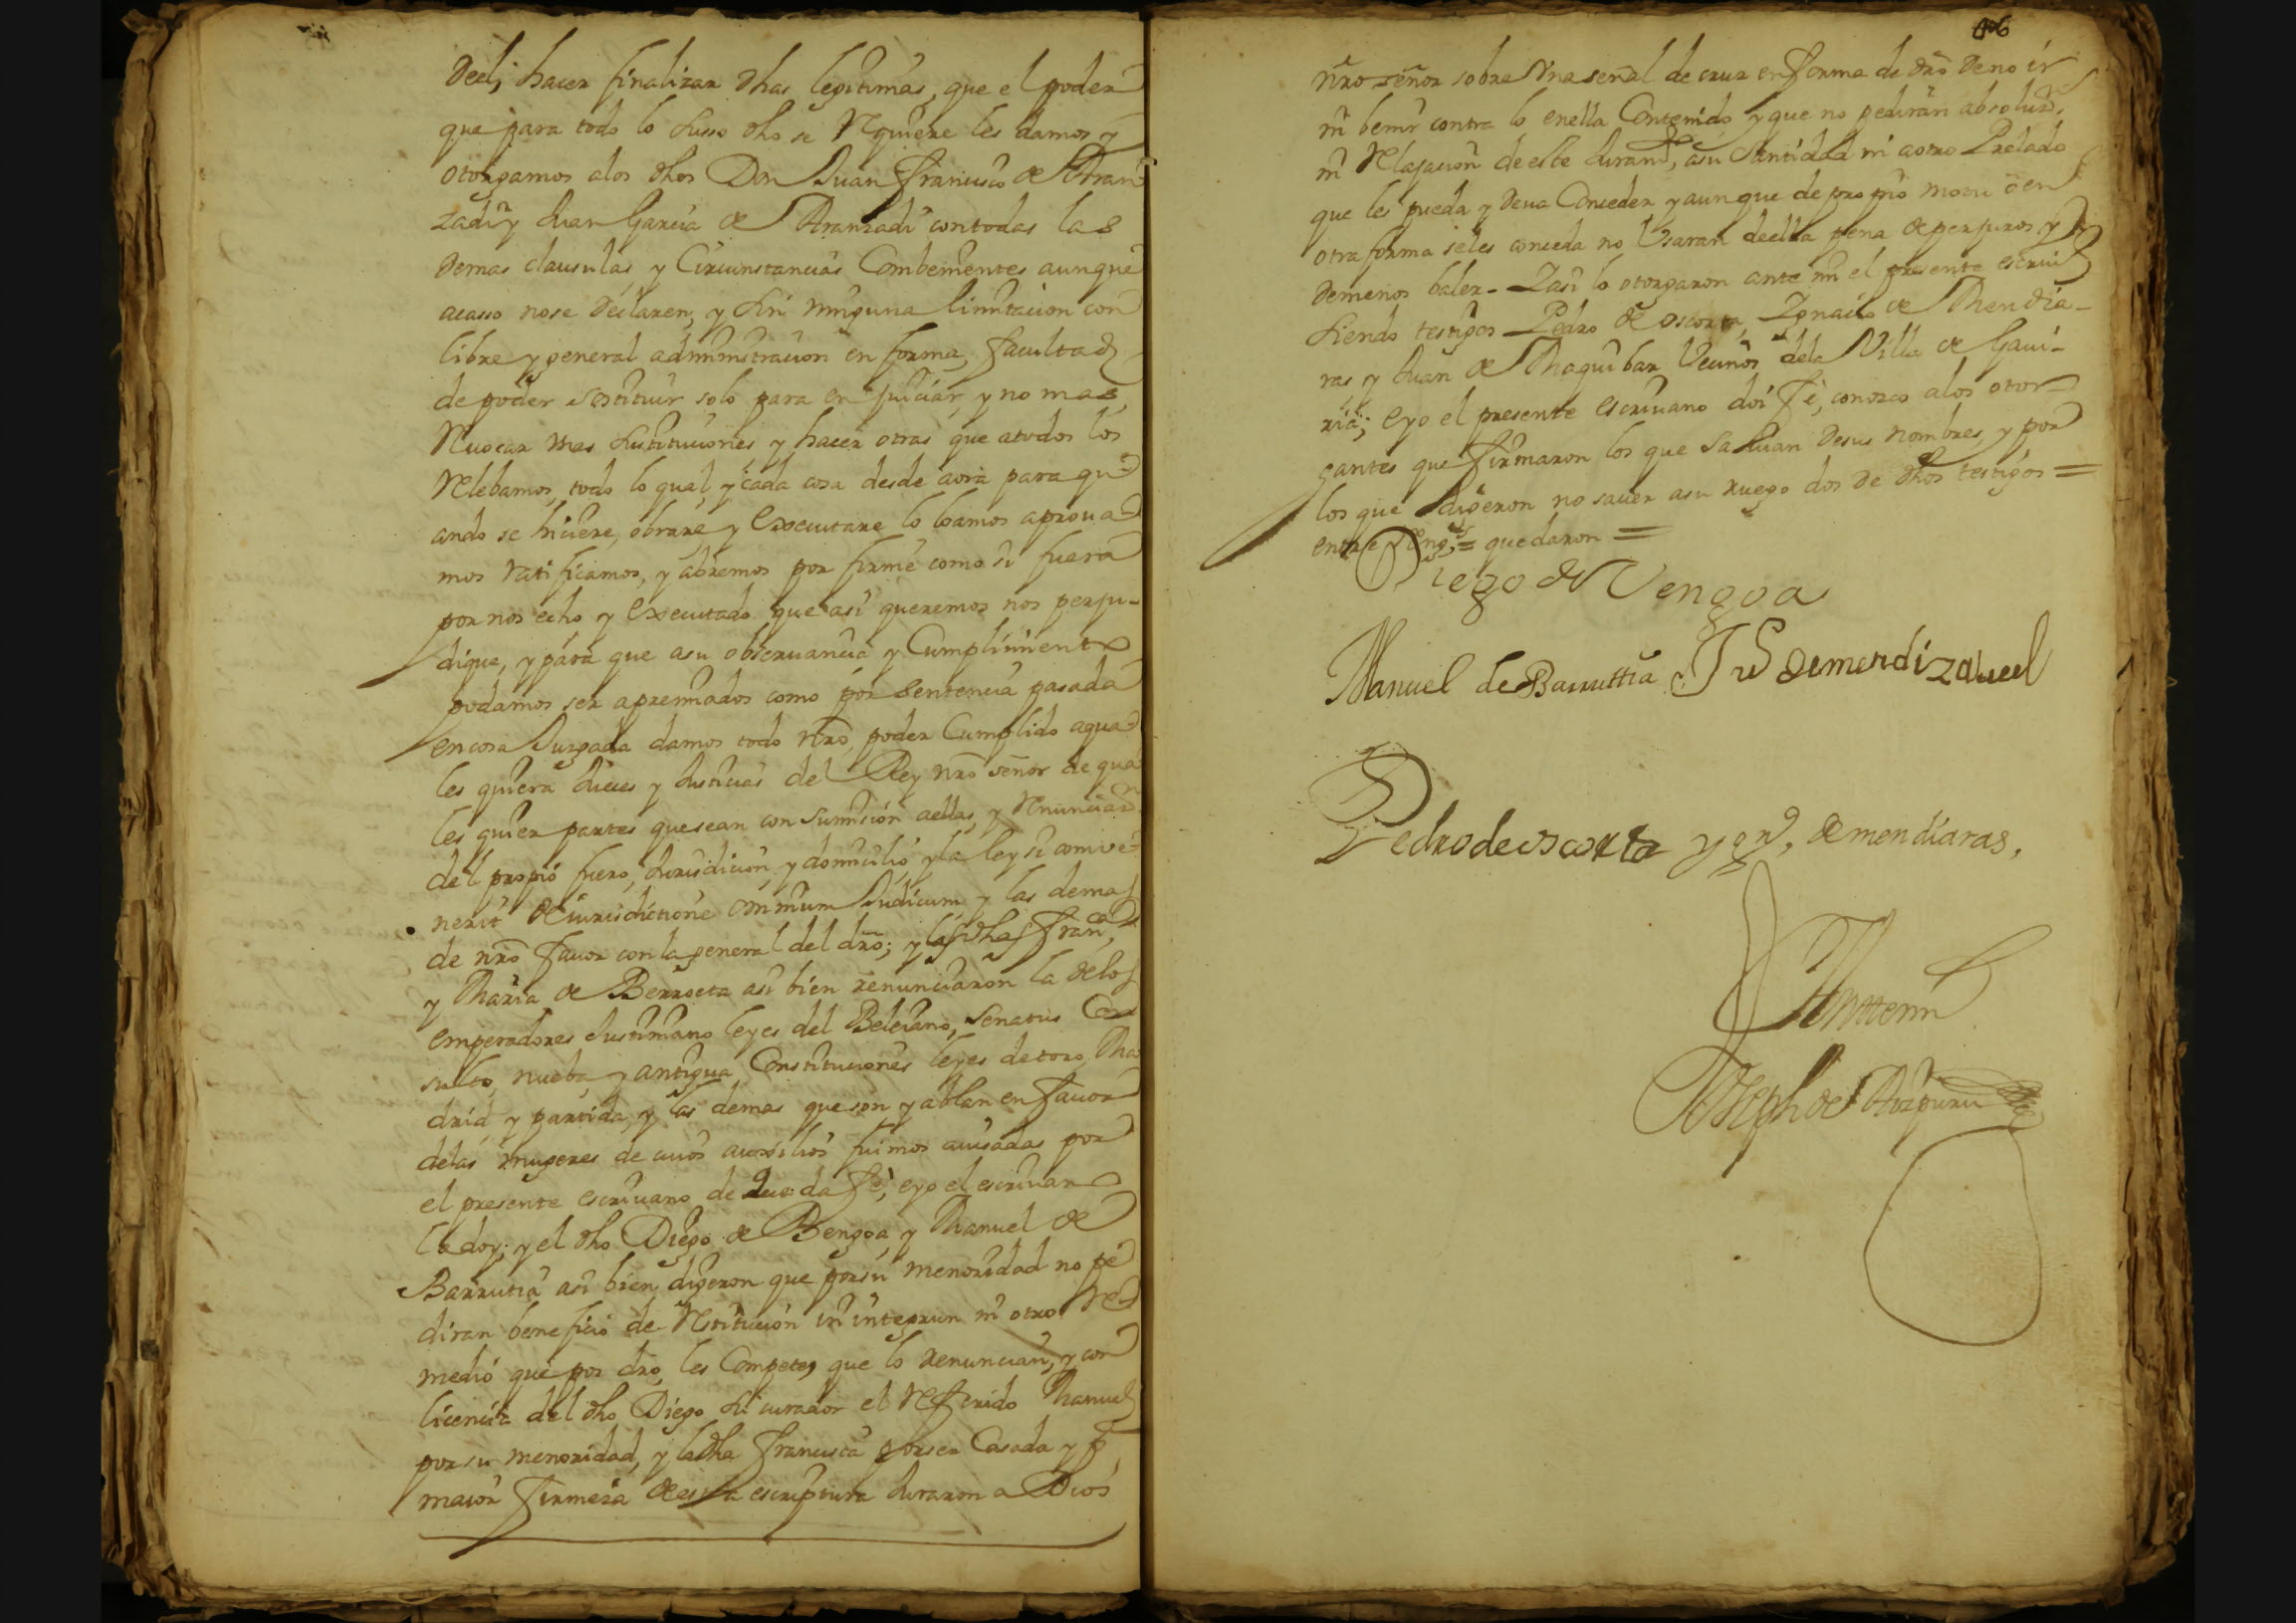 deel, hacer finalizar dhas legitimas, que el poder
que para todo lo susso dho se Rquiere les damos y
otorgamos alos dhos Don Juan Francisco de Aran
zadi y Juan Garcia de Aranzadi con todas las
demas clausulas y Circunstancias Combenientes aunque
acasso no se declaren, y sin ninguna limitacion con
libre y general administracion en forma, facultad
de poder sostituir solo para en juiciar, y no mas,
Reuocar unas sustituciones, y hacer otras que a todos los
Relebamos, todo lo qual, y cada cosa desde aora para qu
ando se hiciere, obrare, y Executare lo loamos aproua
mos ratificamos, y abremos por firme como si fuera
por nos echo y Executado que asi queremos nos perju-
dique, y para que a su obseruancia y Cumplimiento
podamos ser apremiados como por sentencia pasada
en cosa Juzgada damos todo nro, poder Cumplido a qua
les quiera Jueces y Justicias del Rey nro señor de qua
les quier partes que sean con sumision aellas, y Renunciaon
del propio fuero, Jurisdicion, y domicilio, y la ley si conve
nerit de iurisdictione omnium Judicum y las demas
de nro favor con la general del dro; y las dhas Franca,
y Maria de Berroeta asi bien renunciaron la delos
emperadores Justiniano leyes del Beleiano, Senatus Con
sulto, nueba, y antigua Constituciones leyes de toro, Ma
drid y partida, y las demas que son y ablan en favor
delas mugeres de cuios auxilios fuimos auisadas por
el presente escriuano de que da fe, e yo el escriuano
la doy; y el dho Diego de Bengoa, y Manuel de
Barrutia asi bien digeron que por su menoridad no pe
diran beneficio de Rstitucion in integrun ni otro re
medio que por dro, les Compete, que lo renuncian, y con
licencia del dho Diego su curador el Referido Manuel
por su menoridad, y la dha Francisca por ser Casada y p
maior firmeza de esta escriptura Juraron a Dios
nro señor sobre Una señal de cruz en forma de dro de no ir
ni benir contra lo en ella Contenido y que no pediran absoluon,
ni Relajacion de este Juramto, a su Santidad ni a otro Prelado
que les pueda y deua Conceder y aunque de propio motu o en
otra forma se les conceda no Usaran de ella pena de perjuros y
de menos baler- Y asi lo otorgaron ante mi el presente escriuo
siendo testigos Pedro de oscorta, Ygnacio de Mendia-
ras y Juan de Maquibar Vecinos dela Villa de Gaui-
ria; e yo el presente escriuano doi fe, conozco alos otor
gantes que firmaron los que sauian de sus nombres, y por
los que digeron no sauer a su ruego dos de dhos testigos =
entre Reng.s = quedaron =
Diego de Vengoa
Manuel de Barruttia Ju de mendizauel
Pedro de oscorta ygno, de mendiaras,
Antte mi
Joseph de Aizpuru